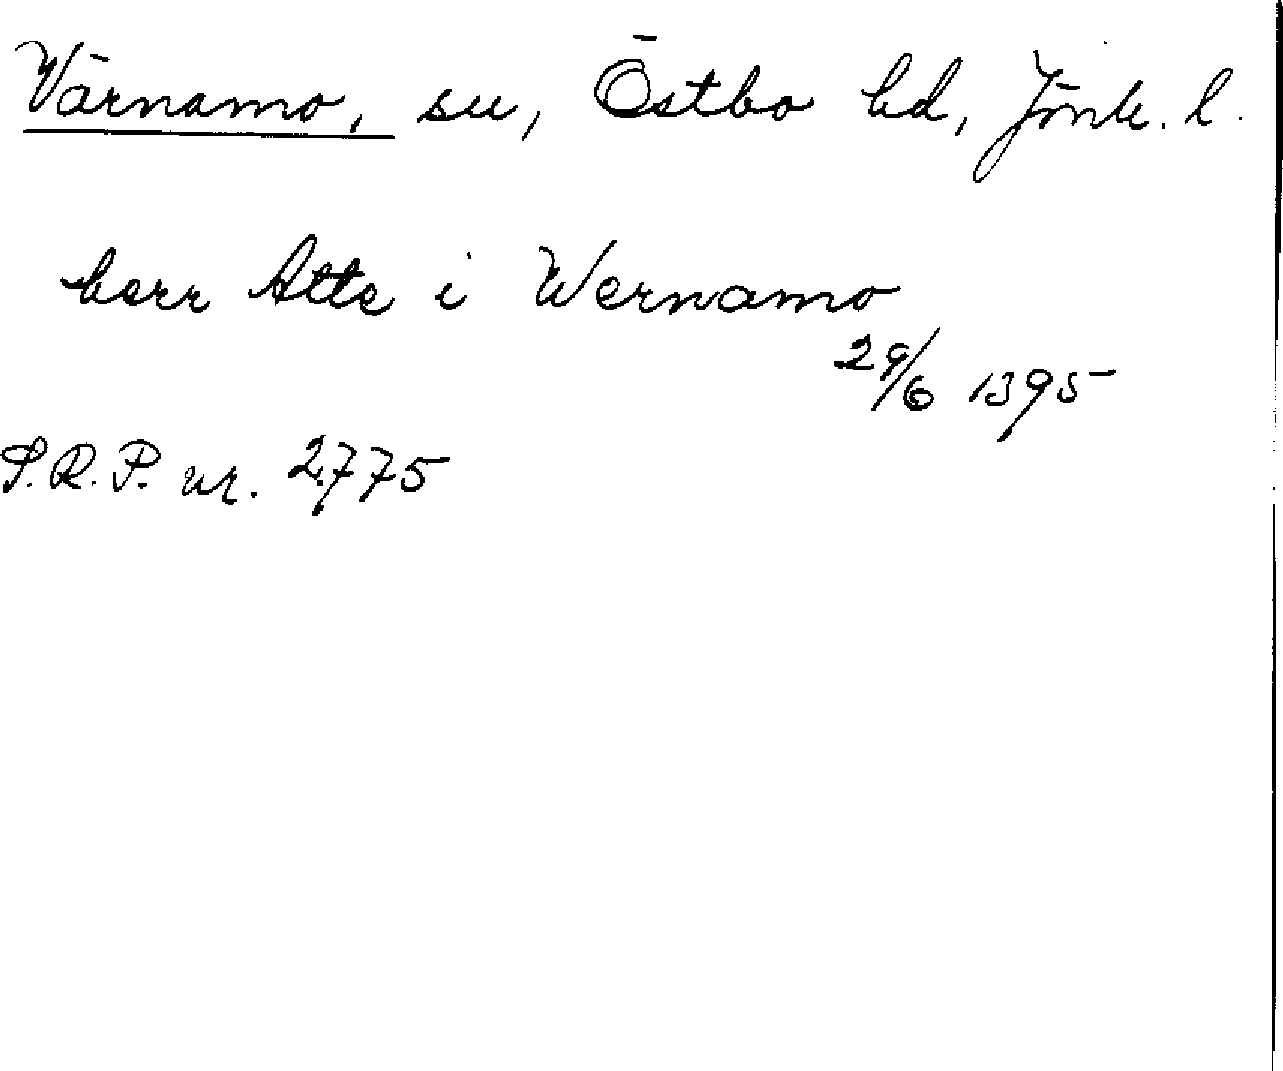 Värnamo, sn, Östbo hd, Jönk. l.
herr Atte i Wernamo
29/6 1395
S.R.P. nr. 2775